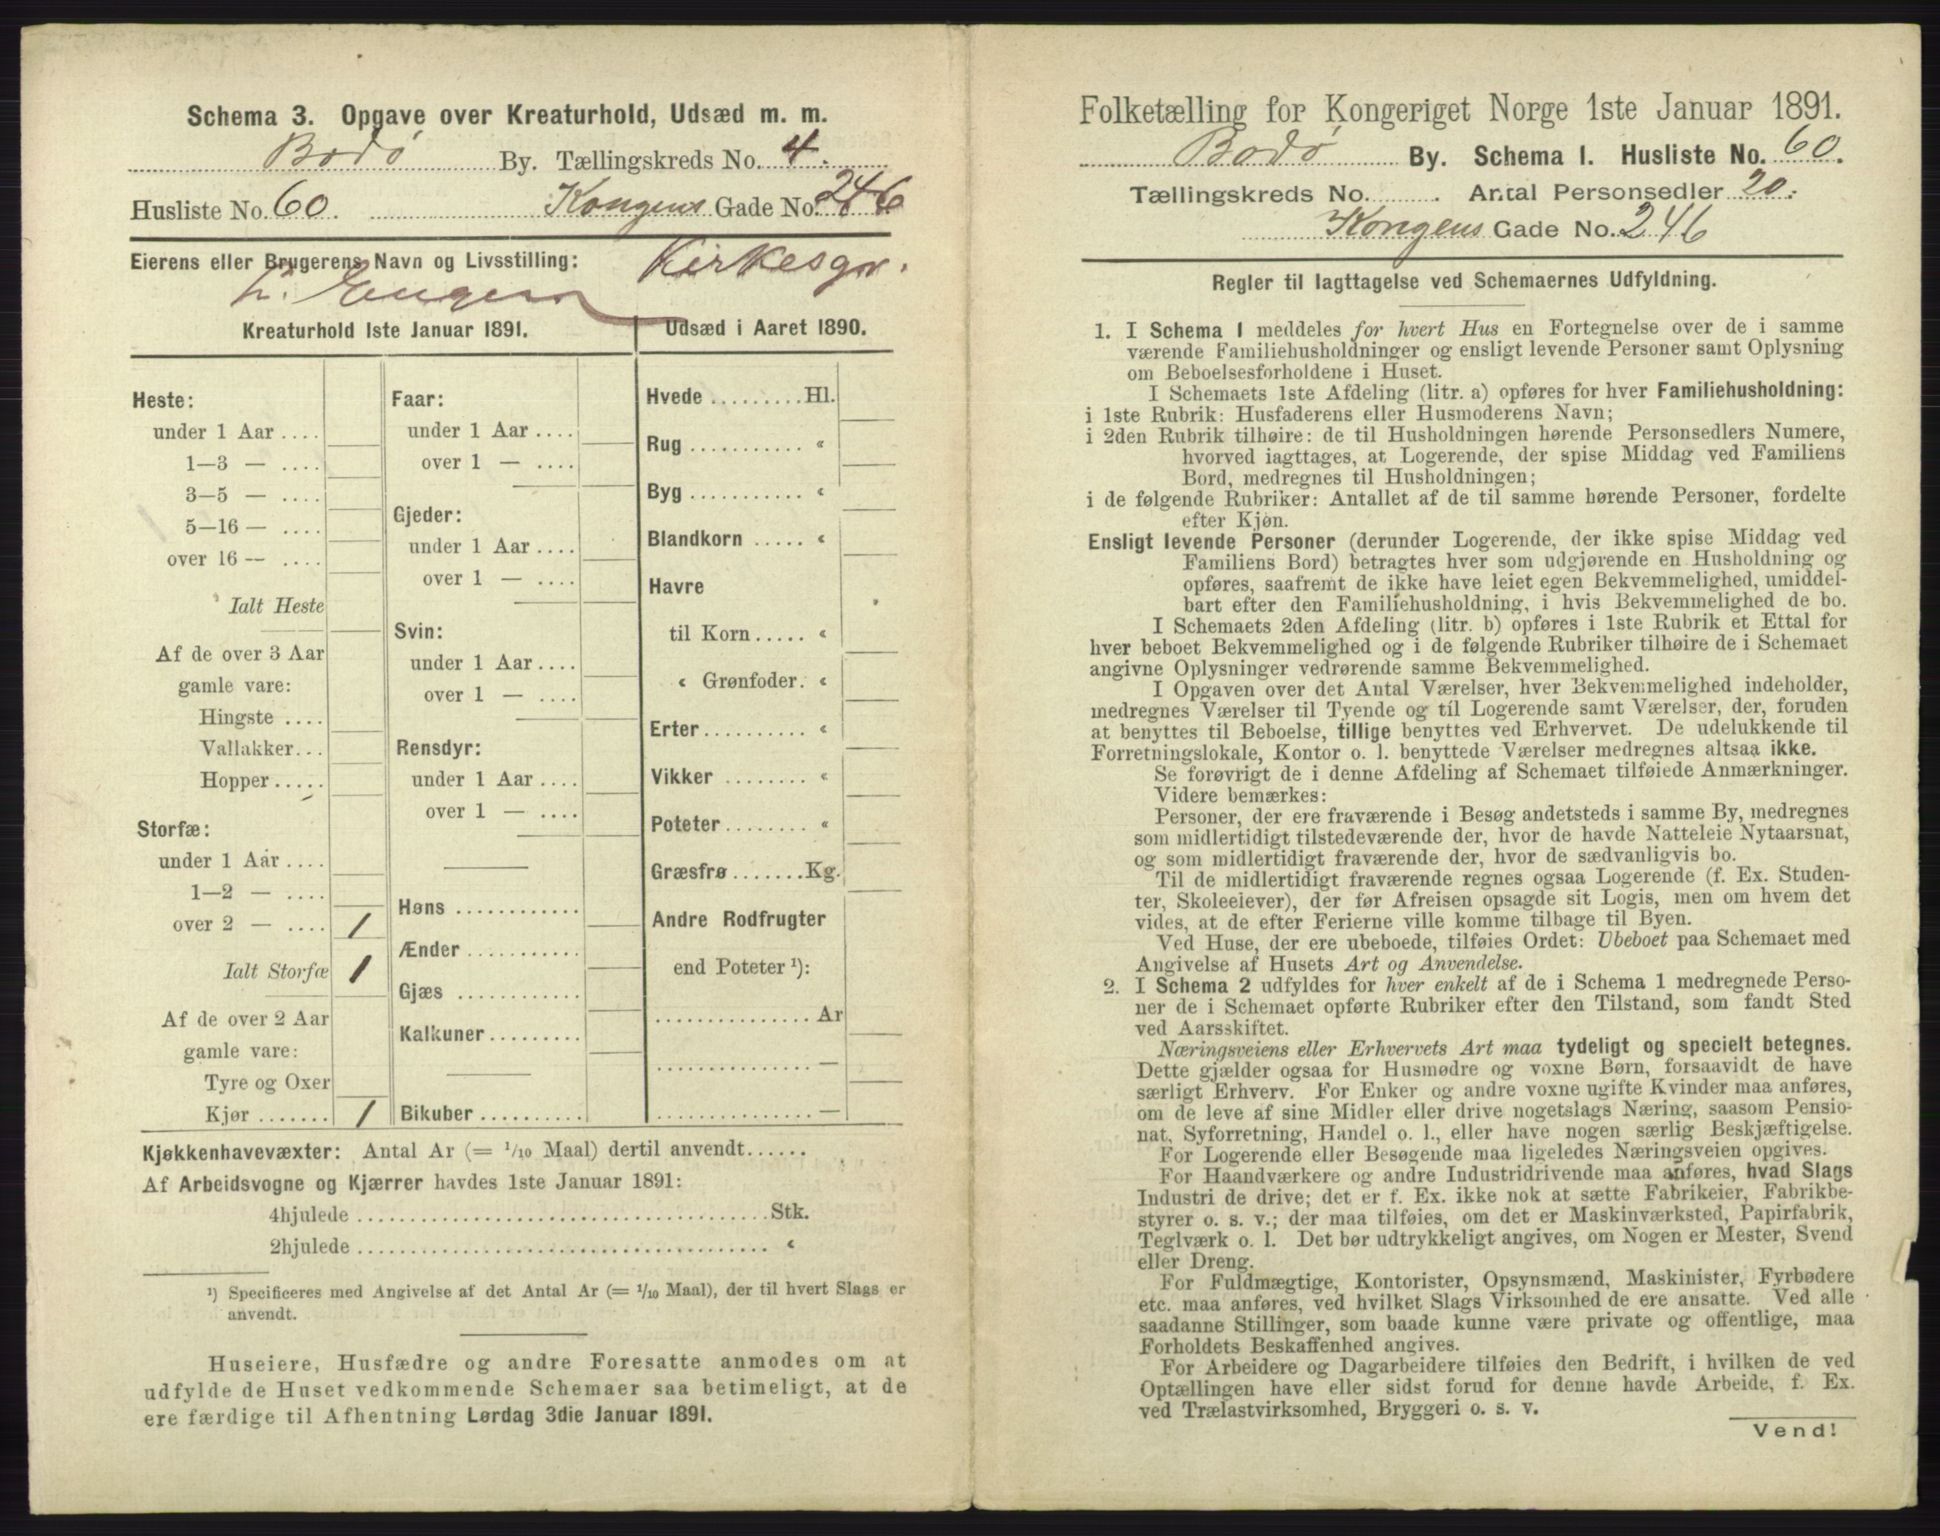 Schema 3. Opgave over Kreaturhold, Udsæd m. m.
Bodø By. Tællingskreds No. 4.
Husliste No. 60. Kongens Gade No. 246
Eierens eller Brugerens Navn og Livsstilling: Kirkesgr.
Kreaturhold 1ste Januar 1891.
Heste:
under 1 Aar ....
1—3 — ....
3—5 — ....
5—16 — ....
over 16 — ....
Ialt Heste
Af de over 3 Aar
gamle vare:
Hingste ....
Vallakker...
Hopper.....
Storfæ:
under 1 Aar ....
1—2 — ....
over 2 — .... 1
Ialt Storfæ 1
Af de over 2 Aar
gamle vare:
Tyre og Oxer
Kjør ....... 1
Faar:
under 1 Aar ....
over 1 — ....
Gjeder:
under 1 Aar ....
over 1 — ....
Svin:
under 1 Aar ....
over 1 — ....
Rensdyr:
under 1 Aar ....
over 1 — ....
Høns ............
Ænder ...........
Gjæs ............
Kalkuner.........
Bikuber..........
Udsæd i Aaret 1890.
Hvede .........Hl.
Rug ........... «
Byg ........... «
Blandkorn ..... «
Havre
til Korn..... «
« Grønfoder. «
Erter ......... «
Vikker ........ «
Poteter........ «
Græsfrø.......Kg.
Andre Rodfrugter
end Poteter ¹):
............... Ar
............... —
............... —
Kjøkkenhavevæxter: Antal Ar (= 1/10 Maal) dertil anvendt......
Af Arbeidsvogne og Kjærrer havdes 1ste Januar 1891:
4hjulede ........................................Stk.
2hjulede ........................................ «
¹) Specificeres med Angivelse af det Antal Ar (= 1/10 Maal), der til hvert Slags er
anvendt.
Huseiere, Husfædre og andre Foresatte anmodes om at
udfylde de Huset vedkommende Schemaer saa betimeligt, at de
ere færdige til Afhentning Lørdag 3die Januar 1891.
Folketælling for Kongeriget Norge 1ste Januar 1891.
Bodø By. Schema 1. Husliste No. 60.
Tællingskreds No. ........ Antal Personsedler 20.
Kongens Gade No. 246
Regler til Iagttagelse ved Schemaernes Udfyldning.
1. I Schema 1 meddeles for hvert Hus en Fortegnelse over de i samme
værende Familiehusholdninger og ensligt levende Personer samt Oplysning
om Beboelsesforholdene i Huset.
I Schemaets 1ste Afdeling (litr. a) opføres for hver Familiehusholdning:
i 1ste Rubrik: Husfaderens eller Husmoderens Navn;
i 2den Rubrik tilhøire: de til Husholdningen hørende Personsedlers Numere,
hvorved iagttages, at Logerende, der spise Middag ved Familiens
Bord, medregnes til Husholdningen;
i de følgende Rubriker: Antallet af de til samme hørende Personer, fordelte
efter Kjøn.
Ensligt levende Personer (derunder Logerende, der ikke spise Middag ved
Familiens Bord) betragtes hver som udgjørende en Husholdning og
opføres, saafremt de ikke have leiet egen Bekvemmelighed, umiddel-
bart efter den Familiehusholdning, i hvis Bekvemmelighed de bo.
I Schemaets 2den Afdeling (litr. b) opføres i 1ste Rubrik et Ettal for
hver beboet Bekvemmelighed og i de følgende Rubriker tilhøire de i Schemaet
angivne Oplysninger vedrørende samme Bekvemmelighed.
I Opgaven over det Antal Værelser, hver Bekvemmelighed indeholder,
medregnes Værelser til Tyende og til Logerende samt Værelser, der, foruden
at benyttes til Beboelse, tillige benyttes ved Erhvervet. De udelukkende til
Forretningslokale, Kontor o. l. benyttede Værelser medregnes altsaa ikke.
Se forøvrigt de i denne Afdeling af Schemaet tilføiede Anmærkninger.
Videre bemærkes:
Personer, der ere fraværende i Besøg andetsteds i samme By, medregnes
som midlertidigt tilstedeværende der, hvor de havde Natteleie Nytaarsnat,
og som midlertidigt fraværende der, hvor de sædvanligvis bo.
Til de midlertidigt fraværende regnes ogsaa Logerende (f. Ex. Studen-
ter, Skoleeiever), der før Afreisen opsagde sit Logis, men om hvem det
vides, at de efter Ferierne ville komme tilbage til Byen.
Ved Huse, der ere ubeboede, tilføies Ordet: Ubeboet paa Schemaet med
Angivelse af Husets Art og Anvendelse.
2. I Schema 2 udfyldes for hver enkelt af de i Schema 1 medregnede Perso-
ner de i Schemaet opførte Rubriker efter den Tilstand, som fandt Sted
ved Aarsskiftet.
Næringsveiens eller Erhvervets Art maa tydeligt og specielt betegnes.
Dette gjælder ogsaa for Husmødre og voxne Børn, forsaavidt de have
særligt Erhverv. For Enker og andre voxne ugifte Kvinder maa anføres,
om de leve af sine Midler eller drive nogetslags Næring, saasom Pensio-
nat, Syforretning, Handel o. l., eller have nogen særlig Beskjæftigelse.
For Logerende eller Besøgende maa ligeledes Næringsveien opgives.
For Haandværkere og andre Industridrivende maa anføres, hvad Slags
Industri de drive; det er f. Ex. ikke nok at sætte Fabrikeier, Fabrikbe-
styrer o. s. v.; der maa tilføies, om det er Maskinværksted, Papirfabrik,
Teglværk o. l. Det bør udtrykkeligt angives, om Nogen er Mester, Svend
eller Dreng.
For Fuldmægtige, Kontorister, Opsynsmænd, Maskinister, Fyrbødere
etc. maa anføres, ved hvilket Slags Virksomhed de ere ansatte. Ved alle
saadanne Stillinger, som baade kunne være private og offentlige, maa
Forholdets Beskaffenhed angives.
For Arbeidere og Dagarbeidere tilføies den Bedrift, i hvilken de ved
Optællingen have eller sidst forud for denne havde Arbeide, f. Ex.
ved Trælastvirksomhed, Bryggeri o. s. v.
Vend!